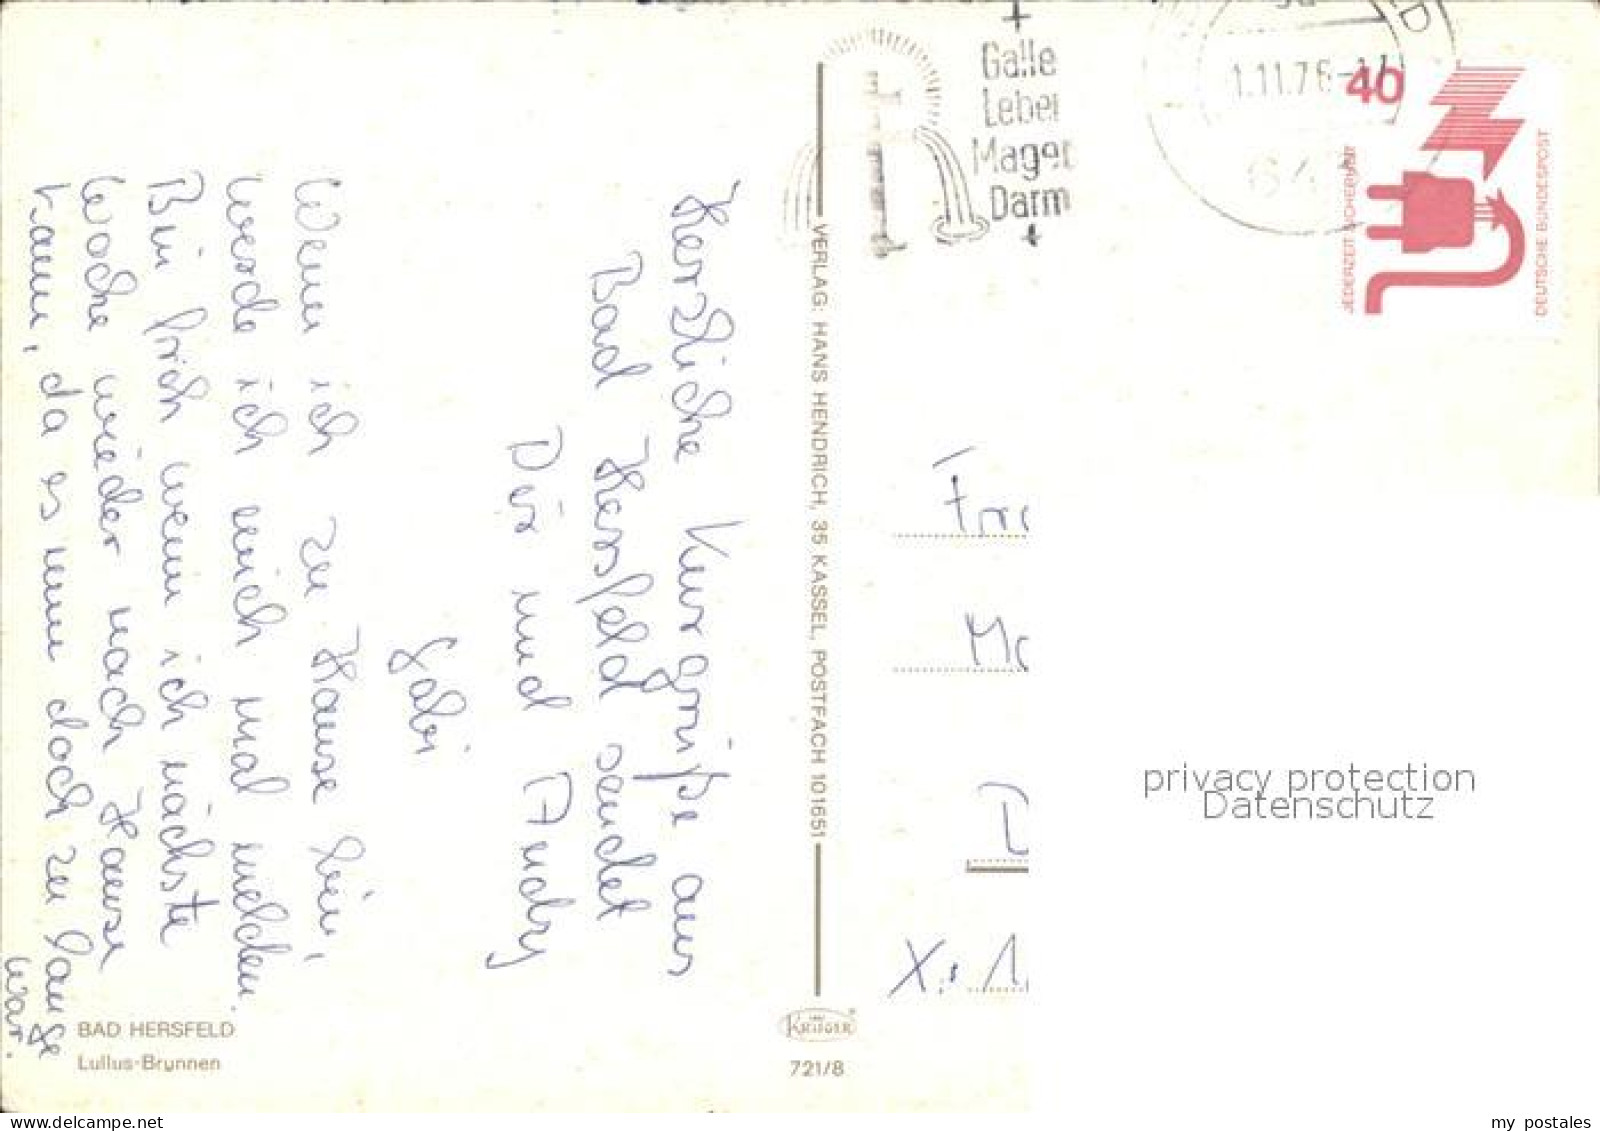 Herzliche Kurgrüße aus
Bad Hersfeld sendet
Dir und Andy
Gabi
Wenn ich zu Hause bin,
werde ich mich mal melden.
Bin froh wenn ich nächste
Woche wieder nach Hause
kann, da es nun doch zu lange
war.
BAD HERSFELD
Lullus-Brunnen
VERLAG: HANS HENDRICH, 35 KASSEL, POSTFACH 101651
KRÜGER
721/8
Galle
Leber
Magen
Darm
1.11.76-11
64
40
JEDERZEIT SICHERHEIT
DEUTSCHE BUNDESPOST
privacy protection
Datenschutz
www.delcampe.net
my_postales